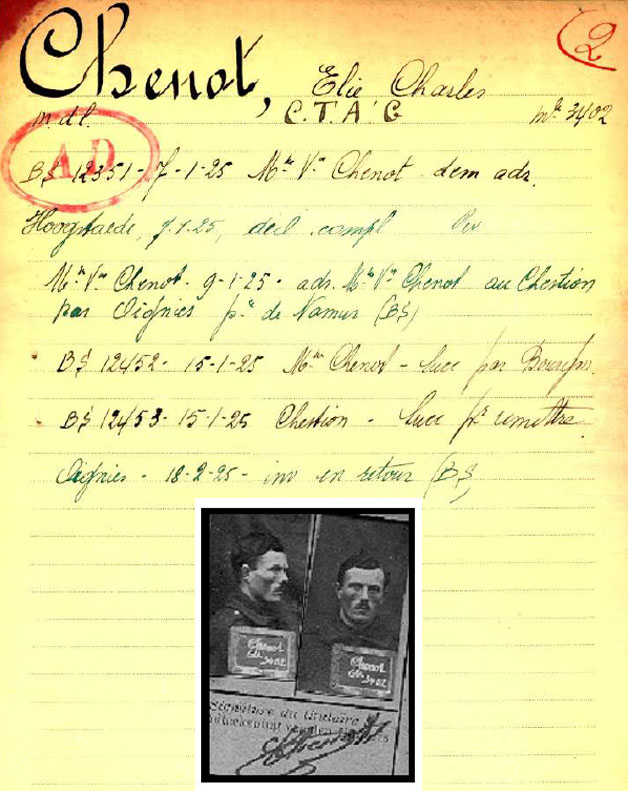 Chenot, Elie Charles
2
m.d.l. C.T.A.G mle 3402
AD
B§ 12351 - 7-1-25 Mme Vve Chenot dem adr.
Hoogstaede, 9.1.25, décl. compl
Mme Vve Chenot - 9-1-25 - adr. Mme Vve Chenot au Chestion
par Oignies pce de Namur (B§)
B§ 12452 - 15-1-25 Mme Chenot - succ par
B§ 12453 - 15-1-25 Chestion - succ pr remettre
Oignies - 18-2-25 - inv en retour (B§)
Chenot
Elie
3402
Chenot
Elie
3402
Signature du titulaire